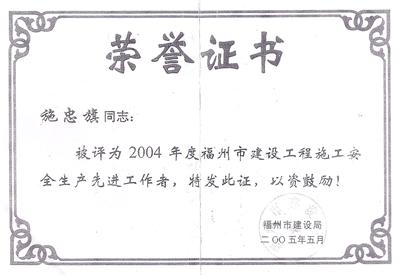 荣誉证书
施忠旗同志：
被评为2004年度福州市建设工程施工安
全生产先进工作者，特发此证，以资鼓励！
福州市建设局
二〇〇五年五月